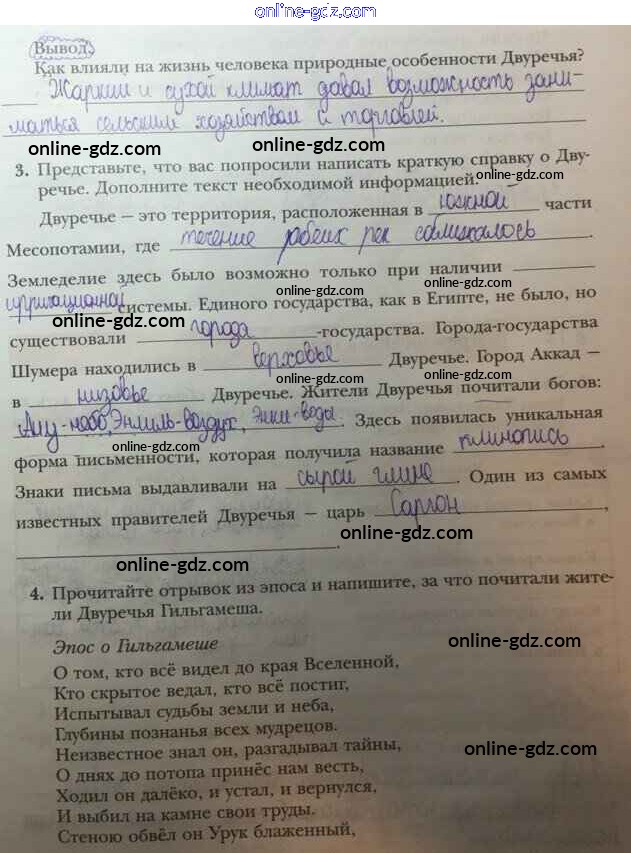 online-gdz.com
Вывод.
Как влияли на жизнь человека природные особенности Двуречья?
Жаркий и сухой климат давал возможность зани-
маться сельским хозяйством и торговлей.
online-gdz.com
3. Представьте, что вас попросили написать краткую справку о Дву-
речье. Дополните текст необходимой информацией.
online-gdz.com
Двуречье – это территория, расположенная в южной части
Месопотамии, где течение рек сближалось
online-gdz.com
Земледелие здесь было возможно только при наличии
online-gdz.com
ирригационной системы. Единого государства, как в Египте, не было, но
online-gdz.com
существовали города -государства. Города-государства
Шумера находились в верховье Двуречье. Город Аккад –
online-gdz.com
в низовье Двуречье. Жители Двуречья почитали богов:
Ану-небо, Энлиль-воздух, Энки-воды. Здесь появилась уникальная
online-gdz.com
форма письменности, которая получила название клинопись.
Знаки письма выдавливали на сырой глине. Один из самых
известных правителей Двуречья – царь Саргон,
online-gdz.com
online-gdz.com
4. Прочитайте отрывок из эпоса и напишите, за что почитали жите-
ли Двуречья Гильгамеша.
Эпос о Гильгамеше
online-gdz.com
О том, кто всё видел до края Вселенной,
Кто скрытое ведал, кто всё постиг,
Испытывал судьбы земли и неба,
Глубины познанья всех мудрецов.
Неизвестное знал он, разгадывал тайны,
online-gdz.com
О днях до потопа принёс нам весть,
Ходил он далёко, и устал, и вернулся,
И выбил на камне свои труды.
Стеною обвёл он Урук блаженный,